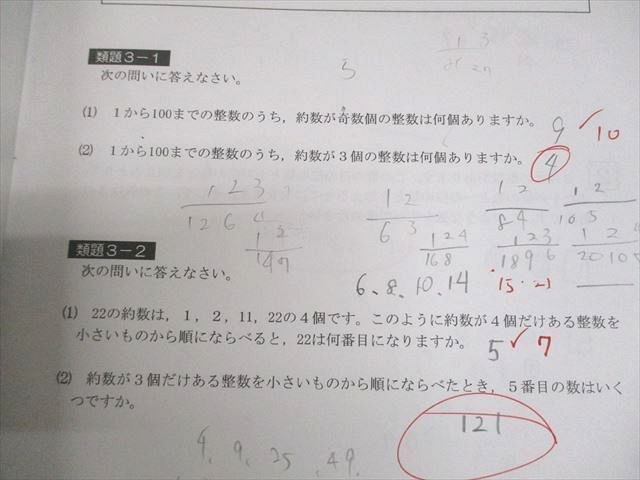 類題3-1
次の問いに答えなさい。
5
(1) 1から100までの整数のうち,約数が奇数個の整数は何個ありますか。
9 10
(2) 1から100までの整数のうち,約数が3個の整数は何個ありますか。
4
1 2 3
12 6 4
1 2
14 7
1 2
6 3
1 2
8 4
1 2
10 5
1 2 4
16 8
1 2 3
18 9 6
1 2 4
20 10
類題3-2
次の問いに答えなさい。
6、8、10、14
15・21
(1) 22の約数は,1,2,11,22の4個です。このように約数が4個だけある整数を
小さいものから順にならべると,22は何番目になりますか。
5 7
(2) 約数が3個だけある整数を小さいものから順にならべたとき,5番目の数はいく
つですか。
121
4、9、25、49、